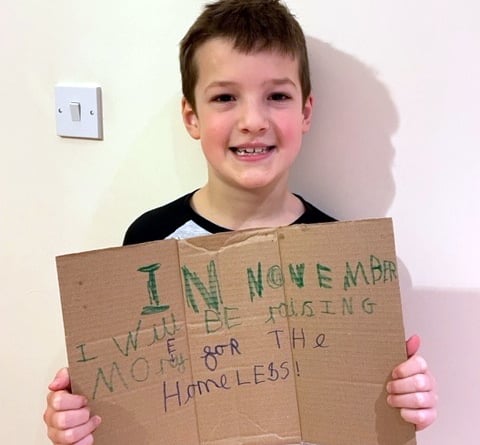 IN NOVEMBER
I Will BE raising
MONEy for THe
HomeLEss!